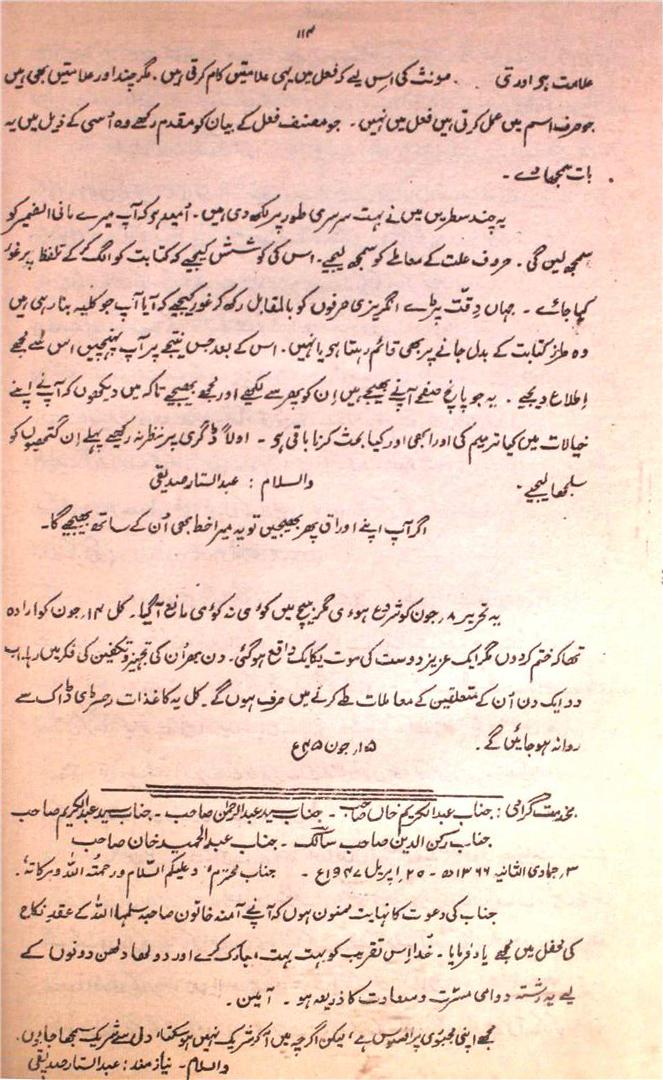 ۱۱۴
علامت ہو اور تی . . مونث کی اس لیے کہ فعل میں یہی علامتیں کام کرتی ہیں۔ مگر چند اور علامتیں بھی ہیں
جو صرف اسم میں عمل کرتی ہیں فعل میں نہیں۔ جو مصنف فعل کے بیان کو مقدم رکھے وہ اُسی کے ذیل میں یہ
بات سمجھا دے۔
یہ چند سطریں میں نے بہت سرسری طور پر لکھ دی ہیں۔ اُمید ہو کہ آپ میرے مافی الضمیر کو
سمجھ لیں گی۔ حروف علت کے معاملے کو سمجھ لیجیے۔ اس کی کوشش کیجیے کہ کتابت کو الگ کر کے تلفظ پر غور
کیا جائے۔ جہاں دِقّت پڑے انگریزی حرفوں کو بالمقابل رکھ کر غور کیجیے کہ آیا آپ جو کلیہ بنا رہی ہیں
وہ طرز کتابت کے بدل جانے پر بھی قائم رہتا ہو یا نہیں۔ اس کے بعد جس نتیجے پر آپ پہنچیں اس سے مجھے
اِطلاع دیجیے۔ یہ جو پانچ صفحے آپنے بھیجے ہیں اِن کو پھر سے لکھیے اور مجھے بھیجیے تاکہ میں دیکھوں کہ آپنے اپنے
خیالات میں کیا ترمیم کی اور ابھی اور کیا بحث کرنا باقی ہو۔ اولاً ڈگری پر نظر نہ رکھیے پہلے اِن گتھیوں کو
سلجھا لیجیے۔ والسلام : عبدالستار صدیقی
اگر آپ اپنے اوراق پھر بھیجیں تو یہ میرا خط بھی اُن کے ساتھ بھیجیے گا۔
یہ تحریر ۸؍ جون کو شروع ہوئی مگر بیچ میں کوئی نہ کوئی مانع آگیا۔ کل ۱۴؍ جون کو ارادہ
تھا کہ ختم کردوں مگر ایک عزیز دوست کی موت یکایک واقع ہوگئی۔ دن بھر اُن کی تجہیز و تکفین کی فکر میں رہا۔ اب
دو ایک دن اُن کے متعلقین کے معاملات طے کرنے میں صرف ہوں گے۔ کل یہ کاغذات رجسٹری ڈاک سے
روانہ ہو جائیں گے۔ ۱۵؍ جون ۴۵ع
بخدمت گرامی : جناب عبدالکریم خاں صاحب۔ جناب سید عبدالرحمٰن صاحب۔ جناب سید عبدالکریم صاحب
جناب رکن الدین صاحب سالک۔ جناب عبدالحمید خان صاحب
۳؍ جمادی الثانیہ ۱۳۶۶ھ۔ ۲۵؍ اپریل ۱۹۴۷ع۔ جناب محترم! وعلیکم السّلام ورحمتہ اللہ وبرکاتہ،
جناب کی دعوت کا نہایت ممنون ہوں کہ آپنے آمنہ خاتون صاحبہ سلمہا اللہ کے عقدِ نکاح
کی محفل میں مجھے یاد فرمایا۔ خُدا اِس تقریب کو بہت بہت مبارک کرے اور دولھا دلھن دونوں کے
لیے یہ رشتہ دوامی مسرّت و سعادت کا ذریعہ ہو۔ آمین۔
مجھے اپنی مجبوری پر افسوس ہے، لیکن اگرچہ میں آکر شریک نہیں ہوسکتا، دل سے شریک سمجھا جاؤں۔
والسلام۔ نیازمند : عبدالستار صدیقی